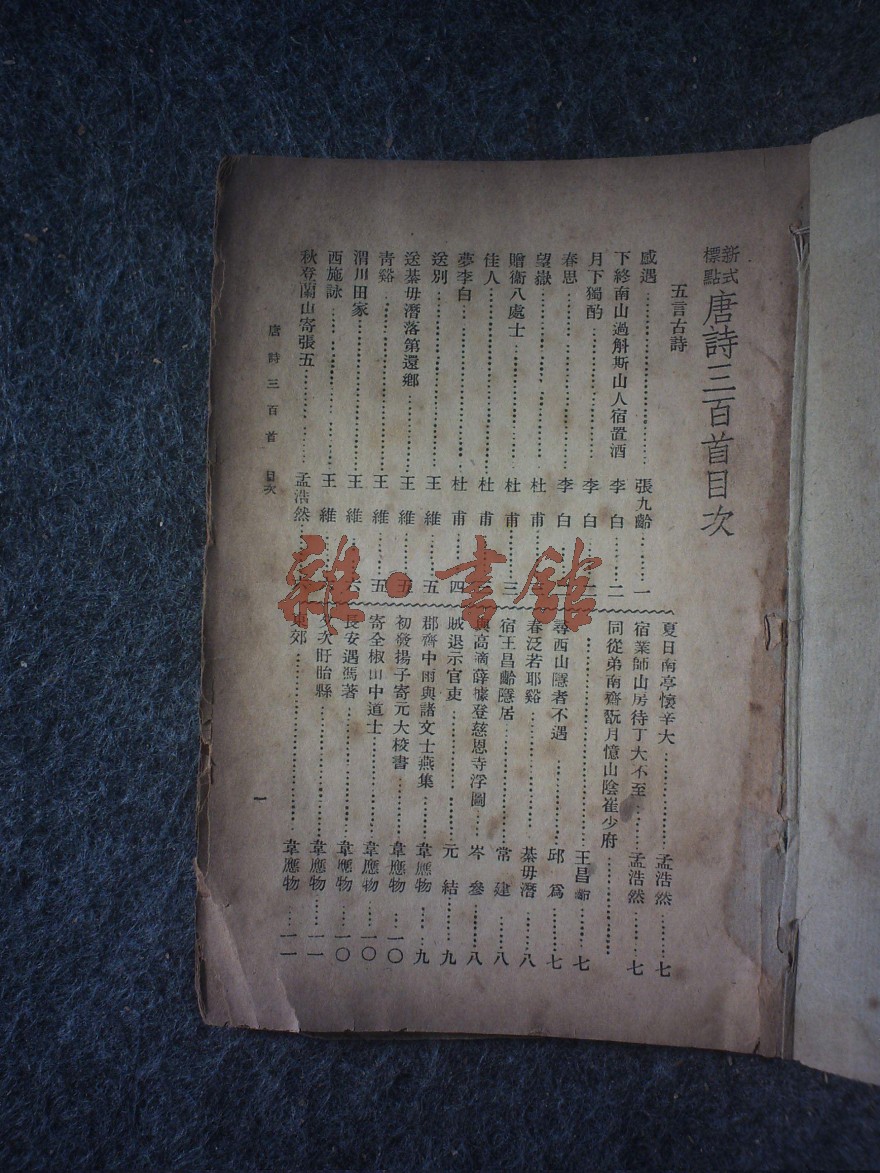 新式標點唐詩三百首目次
五言古詩
感遇……張九齡……一
下終南山過斛斯山人宿置酒
李白……二
月下獨酌……李白……二
春思……李白……
望嶽……杜甫……
贈衞八處士……杜甫……三
佳人……杜甫……
夢李白……杜甫……四
送別……王維……五
送綦毋潛落第還鄉……王維……五
靑谿……王維……五
渭川田家……王維……六
西施詠……王維……
秋登蘭山寄張五……孟浩然……
夏日南亭懷辛大……孟浩然……七
宿業師山房待丁大不至……孟浩然……七
同從弟南齋翫月憶山陰崔少府……
……王昌齡……七
尋西山隱者不遇……邱爲……七
春泛若耶谿……綦毋潛……八
宿王昌齡隱居……常建……八
與高適薛據登慈恩寺浮圖……岑參……八
賊退示官吏……元結……九
郡齋中雨與諸文士燕集……韋應物……九
初發揚子寄元大校書……韋應物……一〇
寄全椒山中道士……韋應物……一〇
長安遇馮著……韋應物……一〇
夕次盱眙縣……韋應物……一一
東郊……韋應物……一一
唐詩三百首 目次
一
雜·書館